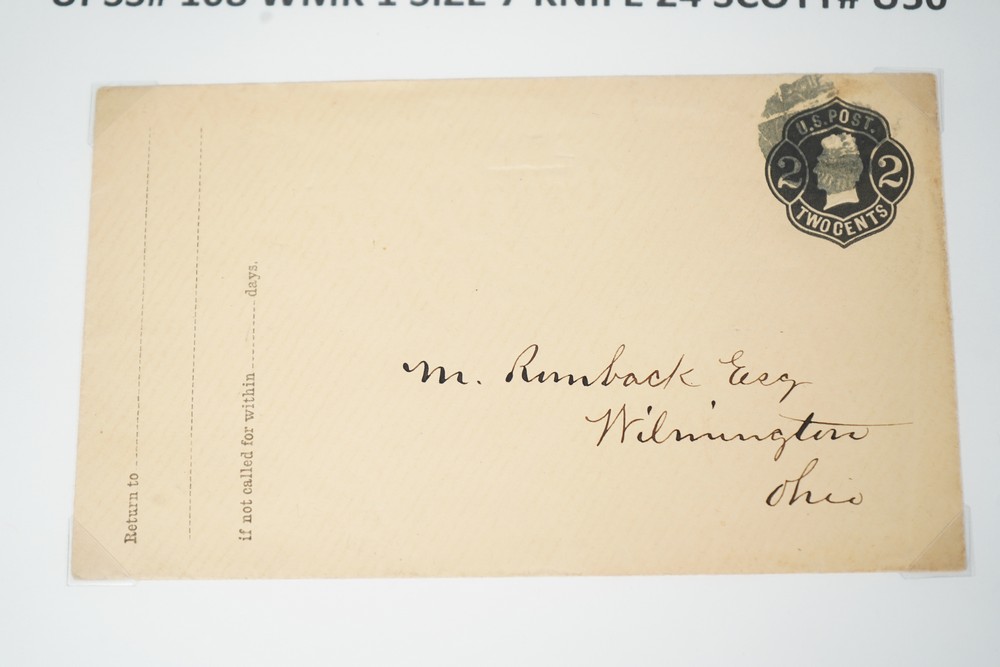 UPSS# 168 WMK 1 SIZE 7 KNIFE 24 SCOTT# U50
U.S. POST.
2 2
TWO CENTS
Return to
if not called for within days.
M. Rombach Esq
Wilmington
Ohio